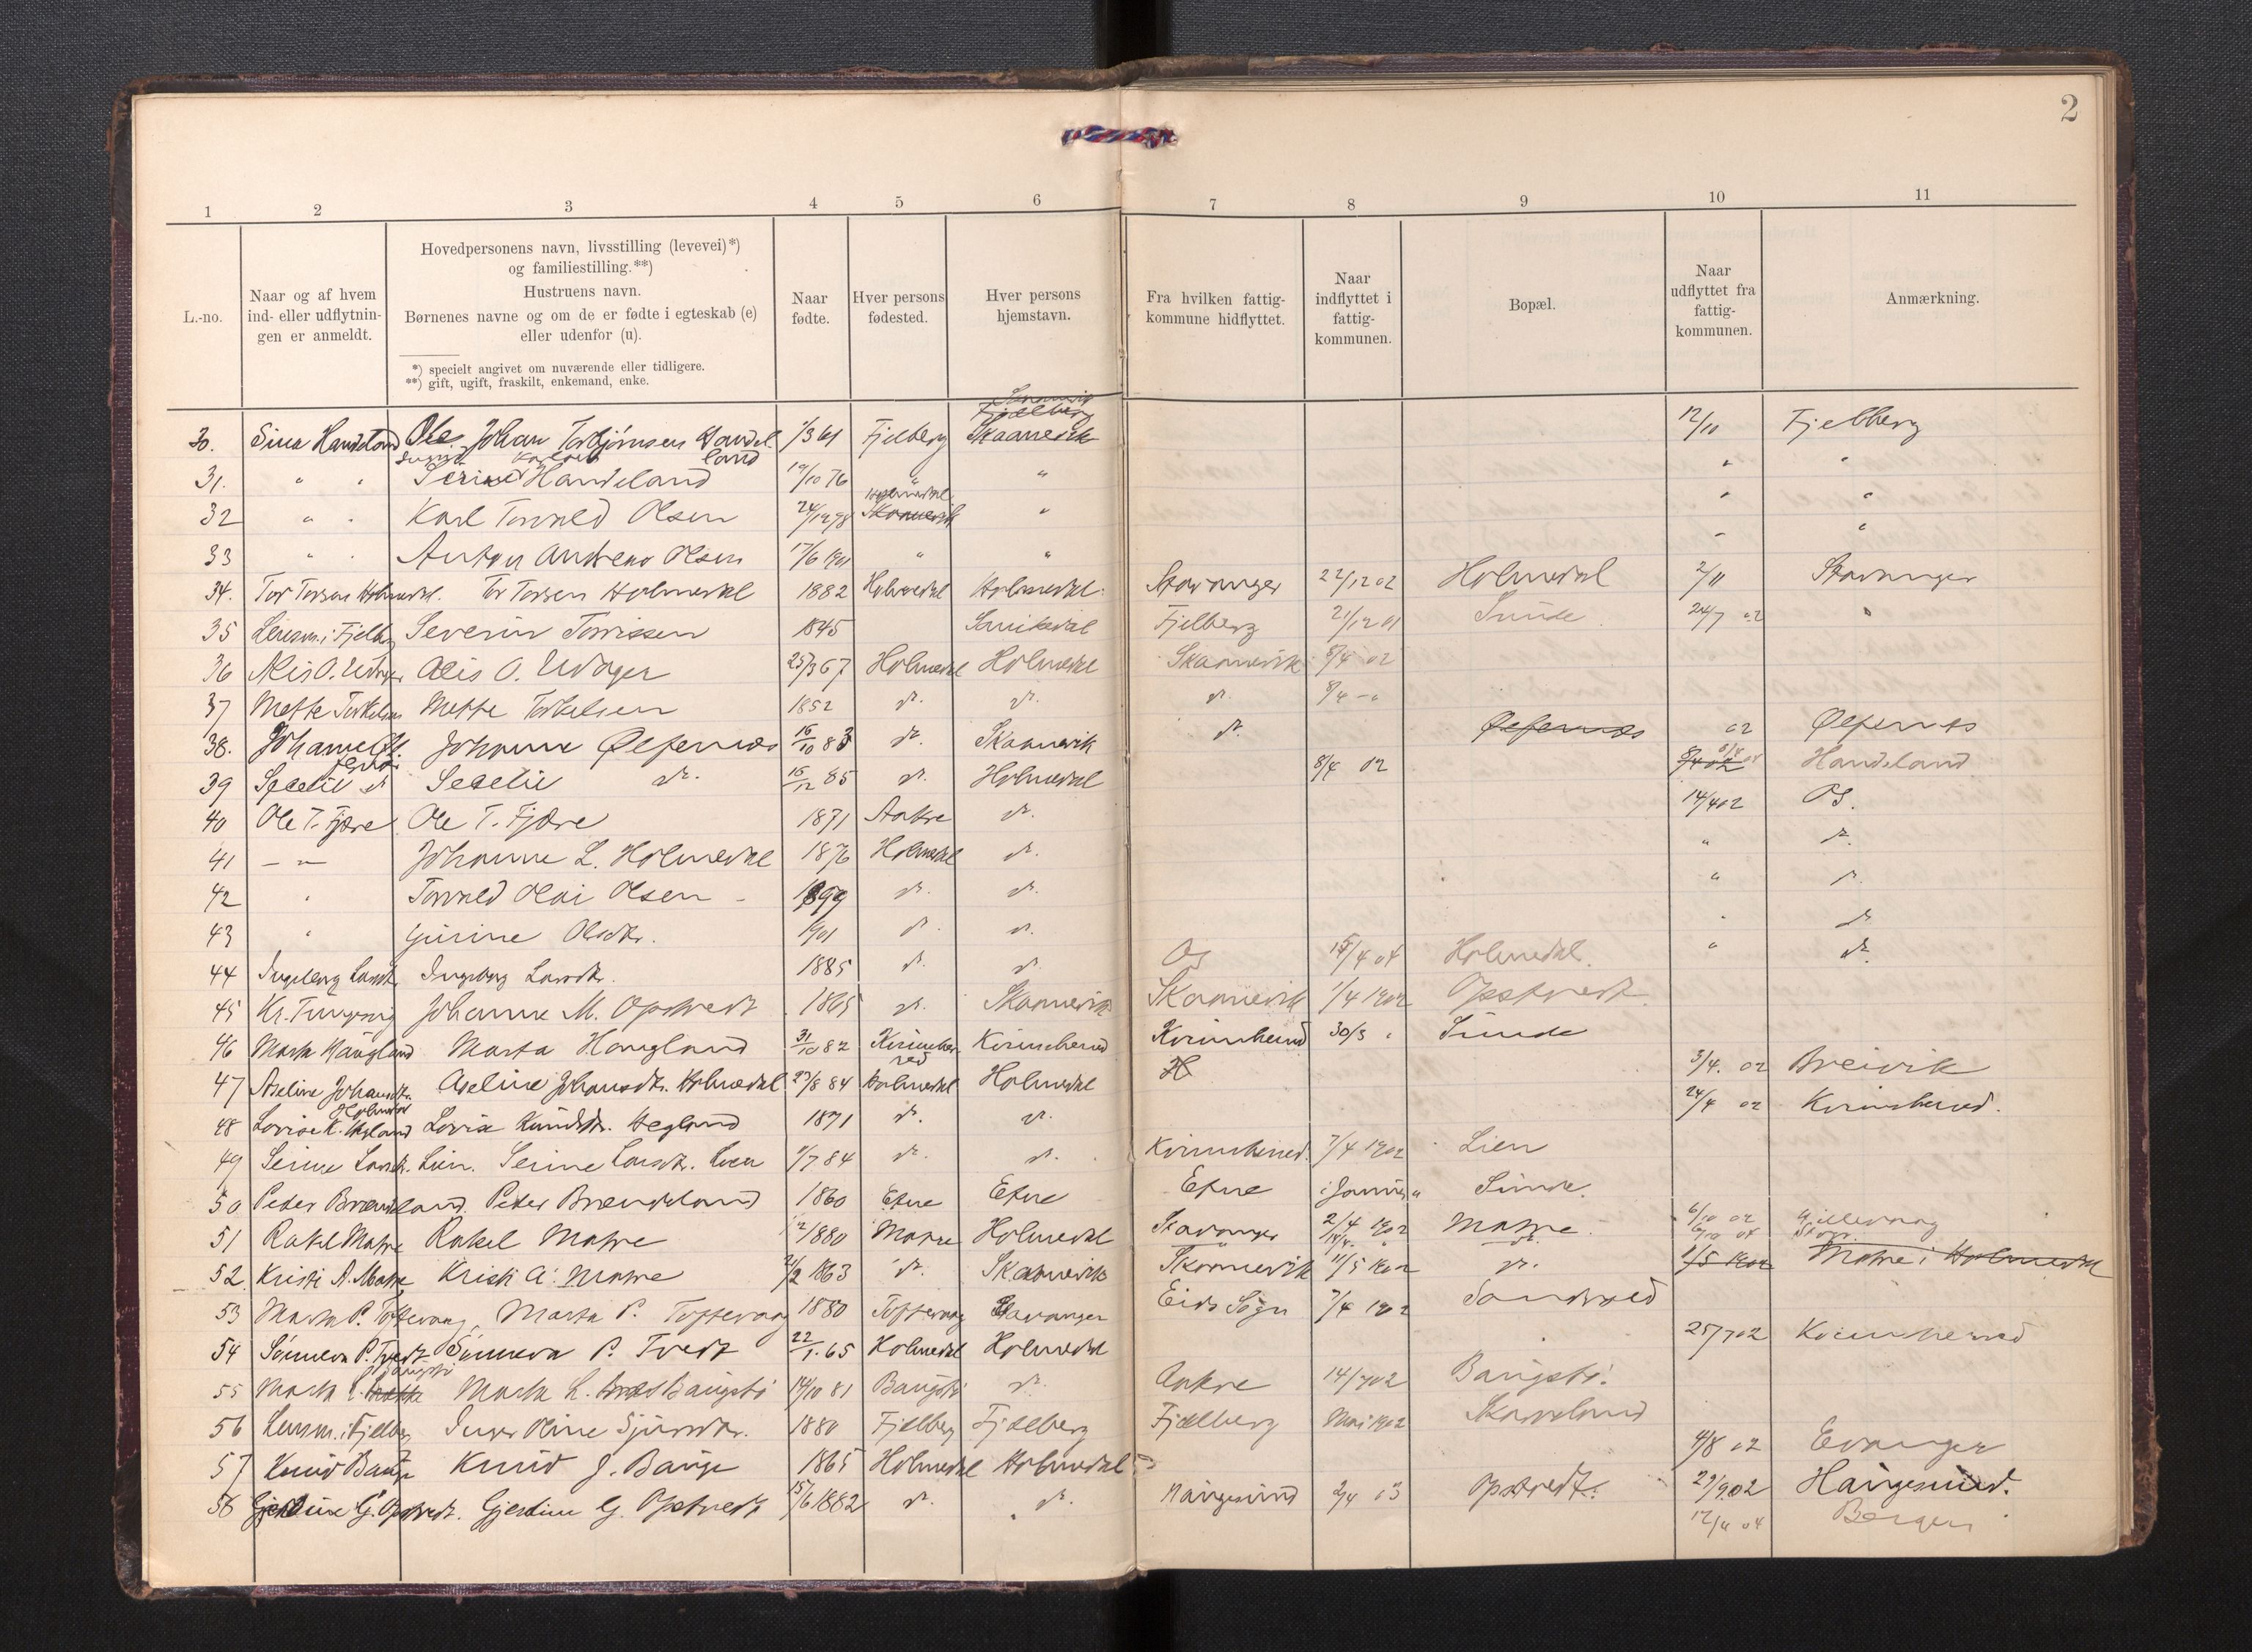 2
1 2 3 4 5 6 7 8 9 10 11
L.-no.
Naar og af hvem
ind- eller udflytnin-
gen er anmeldt.
Hovedpersonens navn, livsstilling (levevei)*)
og familiestilling.**)
Hustruens navn.
Børnenes navne og om de er fødte i egteskab (e)
eller udenfor (u).
*) specielt angivet om nuværende eller tidligere.
**) gift, ugift, fraskilt, enkemand, enke.
Naar
fødte.
Hver persons
fødested.
Hver persons
hjemstavn.
Fra hvilken fattig-
kommune hidflyttet.
Naar
indflyttet i
fattig-
kommunen.
Bopæl.
Naar
udflyttet fra
fattig-
kommunen.
Anmærkning.
Fjelberg
30. Sina Handeland Ole Johan Torbjørnsen Handel- 1/3 61 Fjelberg Skaanevik 12/11 Fjelberg
land
31. " " Handeland 19/10 76 " " " "
Holmedal
32 " " Karl Torvald Olsen 24/12 98 Skaanevik " " "
33 " " Anton Andreas Olsen 17/6 1901 " " " "
34. Tor Torsen Holmedal. Tor Torsen Holmedal 1882 Holmedal Holmedal Stavanger 22/12 02 Holmedal 2/11 Stavanger
35 Lensm. i Fjelberg Severin Torrissen 1845 Fjelberg 21/12 01 Sunde 24/7 02 "
36 Alis O. Udager Alis O. Udager 25/3 67 Holmedal Holmedal Skaanevik 8/4 02
37 Mette Torkelsen Mette Torkelsen 1852 do. do. do. 8/4 - "
38. Johanne Johanne Ølfernæs 16/10 83 do. Skaanevik do. Ølfernæs 02 Ølfernæs
39 Secelie do Secelie do. 16/12 85 do. Holmedal 8/4 02 8/4 02 Handeland
40 Ole T. Fjære Ole T. Fjære 1871 Aakre do. 14/4 02 Os.
41 — " — Johanne L. Holmedal 1876 Holmedal do. " do.
42 " Torvald Olai Olsen 1899 do. do. " do.
43 " Gurine Olsdtr. 1901 do. do. " do
44 Ingeborg Larsdtr. Ingeborg Larsdtr. 1885 do. do. Os 15/4 04 Holmedal. " do.
45 Johanne M. Opstvedt 1865 do. Skaanevik Skaanevik 1/4 1902 Opstvedt.
46 Marta Haugland Marta Haugland 31/10 82 Kvinnhe- Kvinnherred Kvinnherred 30/3 " Sunde
red
47 Aseline Johansdtr. Aseline Johansdtr. Holmedal 23/8 84 Holmedal Holmedal H 3/4. 02 Breivik
Holmedal
48 Lovise K. Hegland Lovise Knudsdtr. Hegland 1871 do. do. 24/4 02 Kvinnherred.
49 Serine Larsdtr. Lien. Serine Larsdtr. Lien 1/7 84 do. do. Kvinnherred. 7/4 1902 Lien
50 Peder Brændeland. Peder Brændeland 1860 Etne Etne Etne i Januar " Sunde.
51 Rakel Matre Rakel Matre 1880 Matre Holmedal Stavanger 2/4 1902 Matre. 6/10 02
52 Kristi A. Matre Kristi A. Matre 21/2 1863 do. Skaanevik Skaanevik 11/5 1902 do. 1/5 1902 Matre i Holmedal
53 Marta P. Toftevaag, Marta P. Toftevaag 1880 Toftevaag Stavanger Eids Sogn 7/4 1902 Sandvold
54 Sunneva P. Tvedt Sunneva P. Tvedt 22/1. 65 Holmedal Holmedal 25/7 02 Kvinnherred
55 Marta L. Marta L. Baugstø 14/10 81 Baugstø do. Aakre 14/7 02 Baugstø.
56 Lensm. i Fjelberg Inger Oline Sjursdtr. 1880 Fjelberg Fjelberg Fjelberg Mai 1902
57 Knud Bauge Knud J. Bauge 1865 Holmedal Holmedal 4/8 02 Evanger
58 Gjertine G. Opstvedt. Gjertine G. Opstvedt 15/6 1882 do. do. Haugesund 2/4 03 Opstvedt. 29/9 02 Haugesund.
12/4 04 Bergen